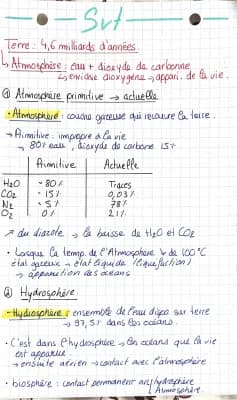 Svt
Terre : 4,6 milliards d'années.
↳ Atmosphère : eau + dioxyde de carbone
↳ enrichie dioxygène → appari. de la vie.
① Atmosphère primitive → actuelle
• Atmosphère : couche gazeuse qui recouvre la terre.
→ Primitive : impropre à la vie
→ 80% eau, dioxyde de carbone 15%
Primitive Actuelle
H2O ~ 80% Traces
CO2 ~ 15% 0,03%
N2 ~ 5% 78%
O2 0% 21%
↗ du dioxole → la baisse de H2O et CO2
• Lorsque la temp. de l'Atmosphère ↘ de 100°C
état gazeux → état liquide (liquéfaction)
→ apparition des océans
② Hydrosphère.
• Hydrosphère : ensemble de l'eau dispo sur terre
→ 97,5% dans les océans.
• C'est dans l'hydrosphère → les océans que la vie
est apparue.
→ ensuite aérien → contact avec l'atmosphère
• biosphère : contact permanent hydrosphère
Atmosphère.